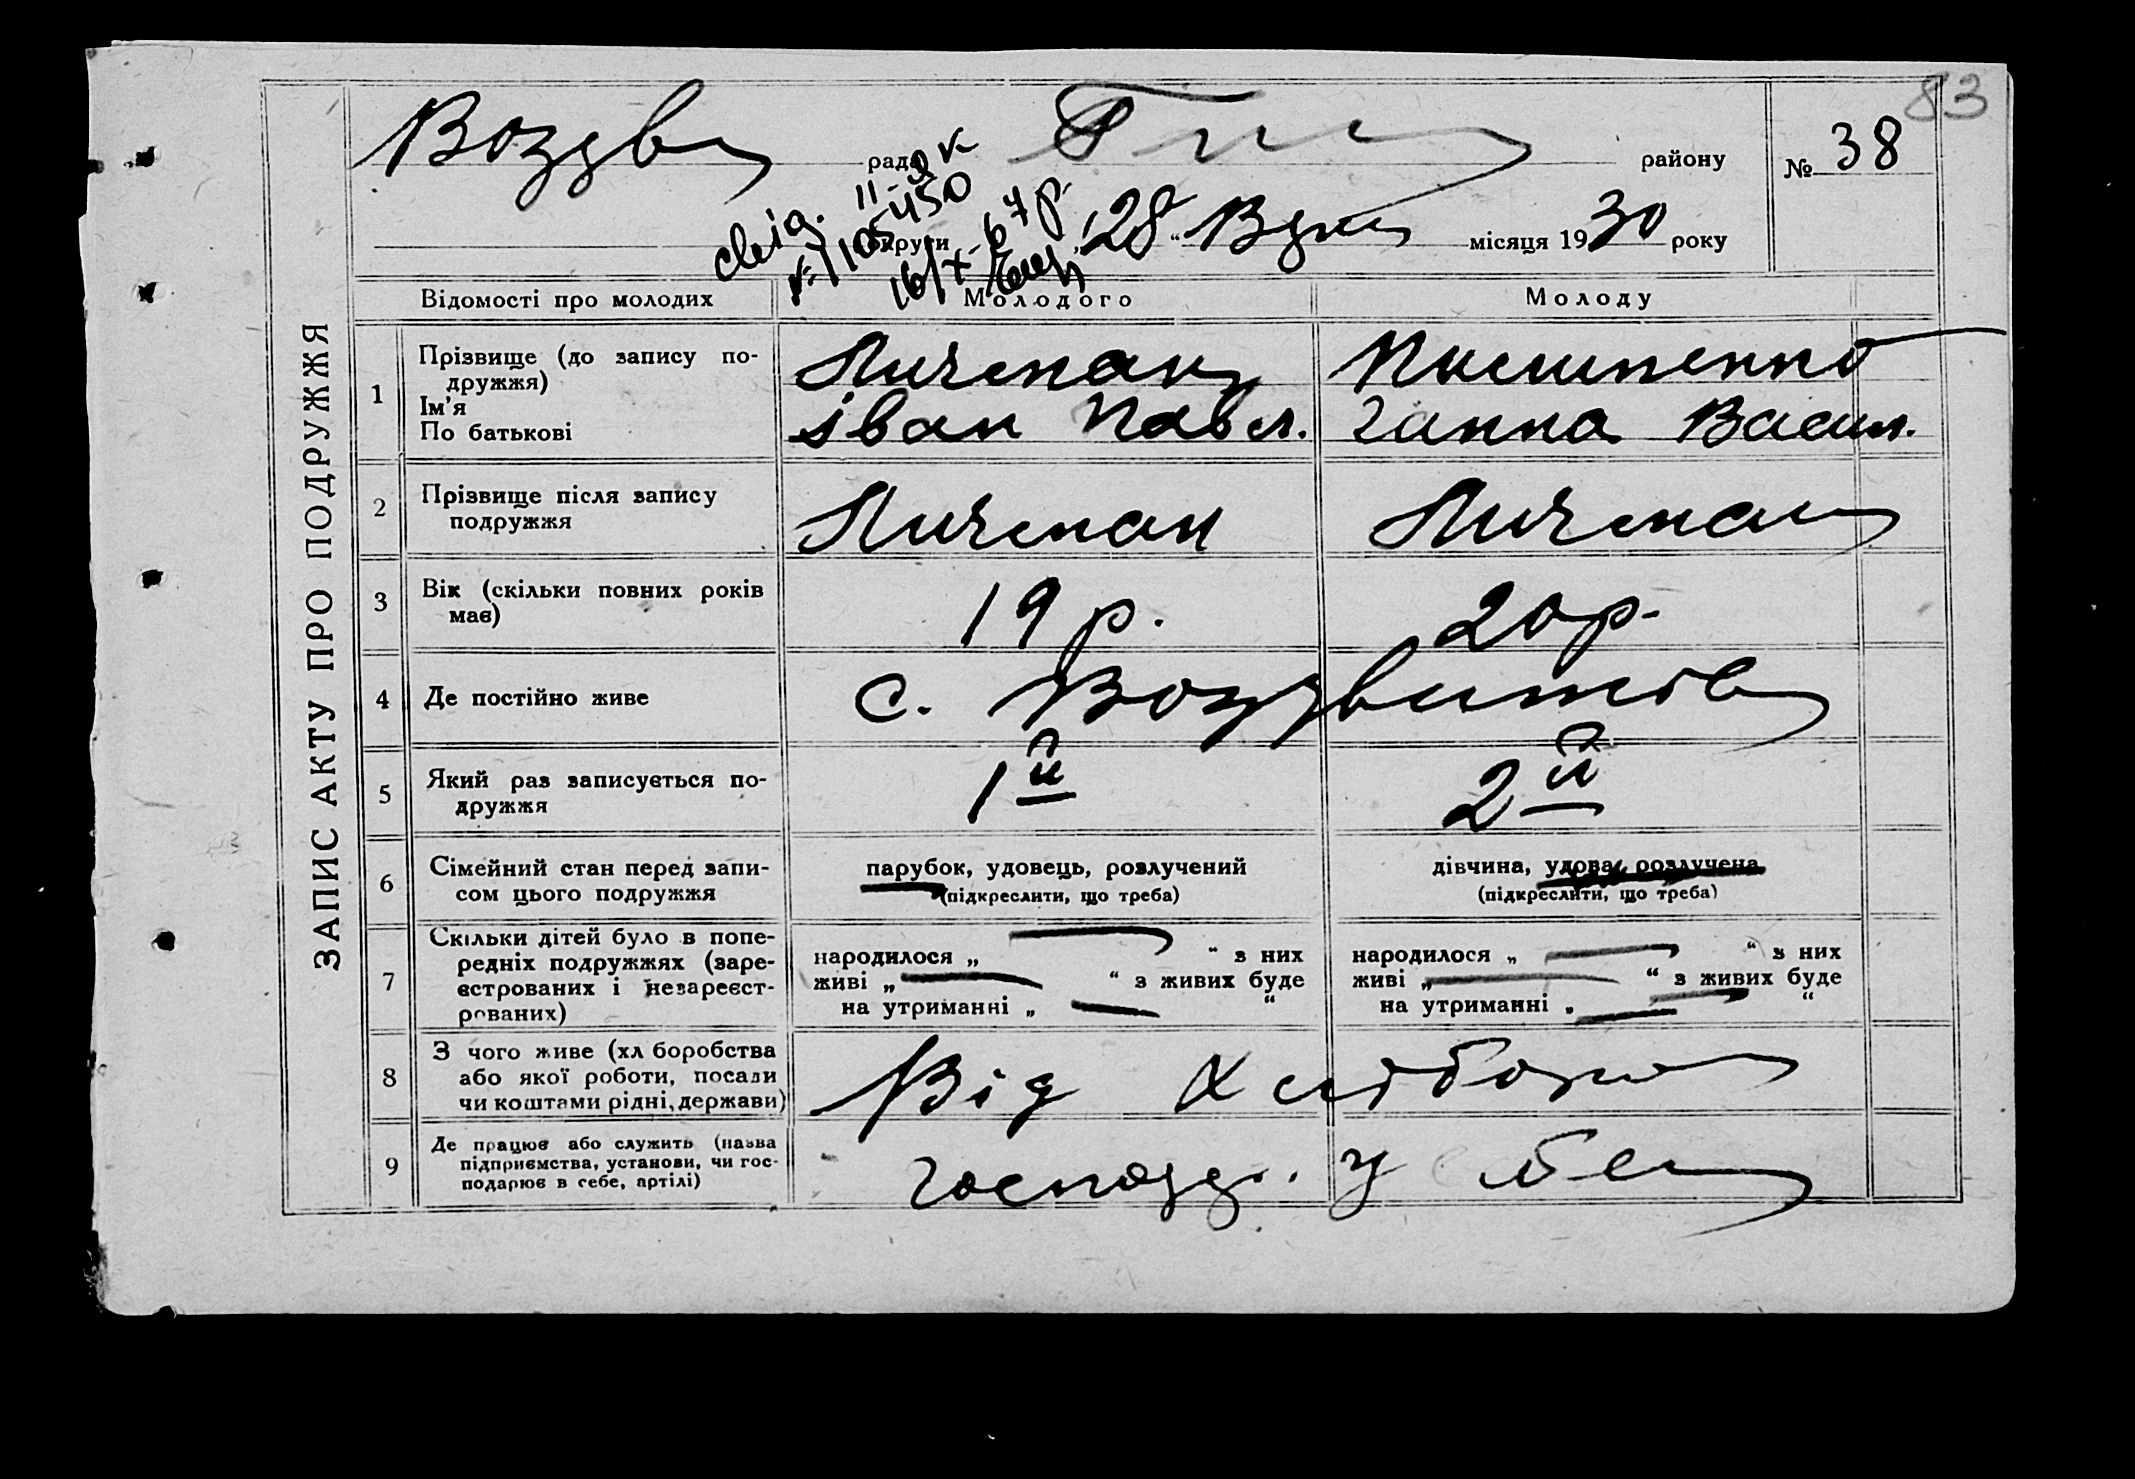 83
Воздв рада району № 38
округи „28“ місяця 1930 року
свід. II-
16/X-67р.
ЗАПИС АКТУ ПРО ПОДРУЖЖЯ
Відомості про молодих Молодого Молоду
1 Прізвище (до запису по-
дружжя)
Ім'я
По батькові
Личман
Іван Павл. Ганна Васил.
2 Прізвище після запису
подружжя
Личман Личман
3 Вік (скільки повних років
має)
19 р. 20 р.
4 Де постійно живе
с. Воздвижів
5 Який раз записується по-
дружжя
1й 2й
6 Сімейний стан перед запи-
сом цього подружжя
парубок, удовець, розлучений
(підкреслити, що треба)
дівчина, удова, розлучена
(підкреслити, що треба)
7 Скільки дітей було в попе-
редніх подружжях (заре-
єстрованих і незареєст-
рованих)
народилося „ “ з них
живі „ “ з живих буде
на утриманні „ “
народилося „ “ з них
живі „ “ з живих буде
на утриманні „ “
8 З чого живе (хл боробства
або якої роботи, посади
чи коштами рідні, держави)
Від
9 Де працює або служить (назва
підприємства, установи, чи гос-
подарює в себе, артілі)
у себе